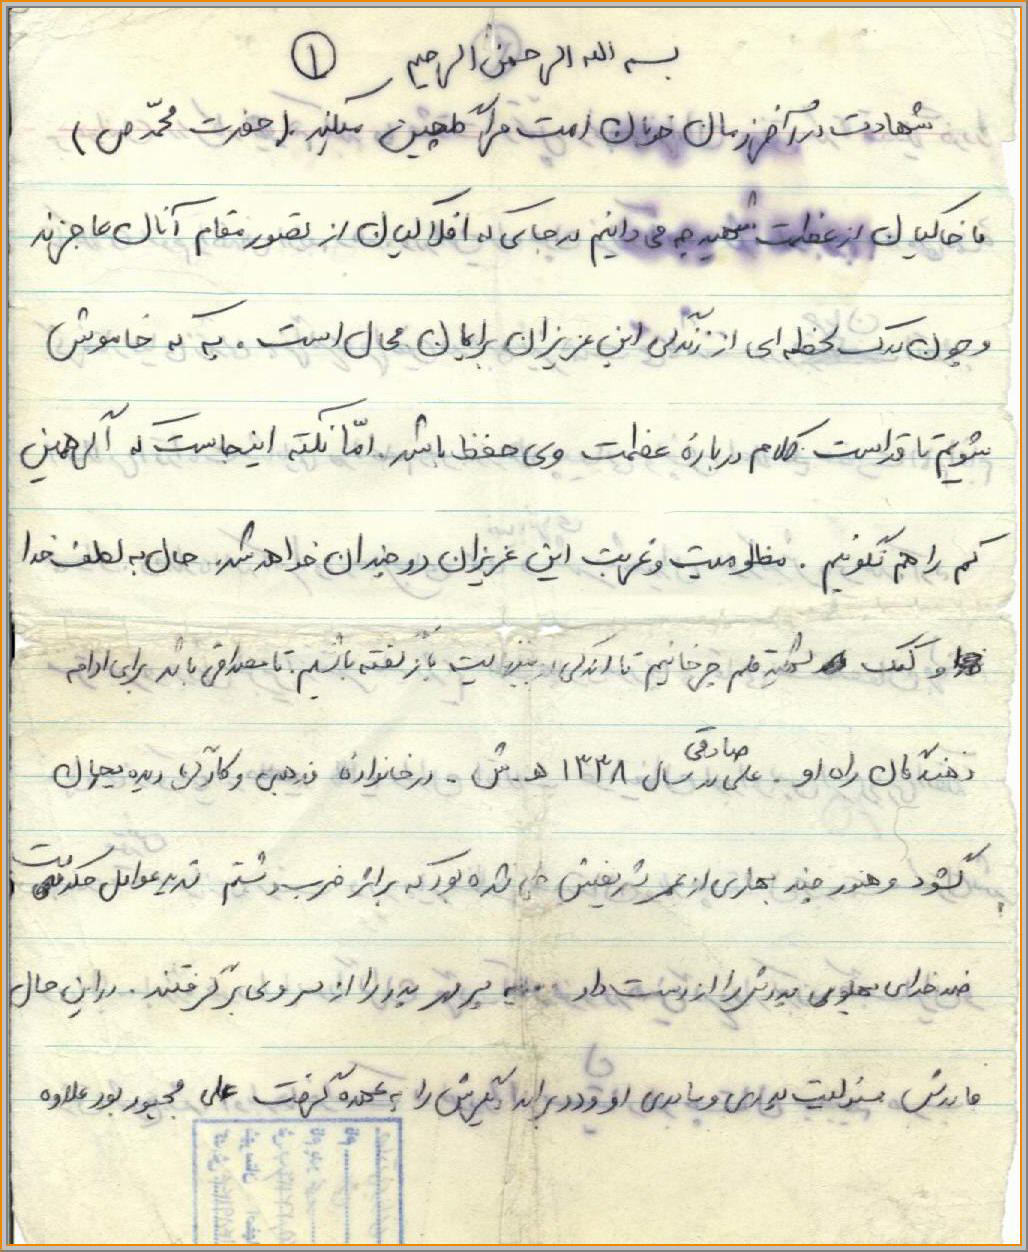 بسم الله الرحمن الرحیم ①
شهادت در آخر زمان خوبان امت مرا گلچین میکند. (حضرت محمّد ص)
ما خاکیان از عظمت شهید چه می دانیم در جایی که افلاکیان از تصور مقام آنان عاجزند
و چون درک لحظه ای از زندگی این عزیزان برایمان محال است. به که خاموش
شویم تا قداست کلام درباره عظمت وی حفظ باشد. امّا نکته اینجاست که اگر همین
کم را هم نگوئیم. مظلومیت و غربت این عزیزان دو چندان خواهد شد. حال به لطف خدا
و کمک قلم تا اندکی از باز گفته باشیم. تا مصداقی باشد برای ادامه
دهندگان راه او. علی صادقی در سال ۱۳۳۸ ه.ش. در خانواده مذهبی و کارگر دیده بجهان
گشود و هنوز چند بهاری از عمر شریفش طی نشده بود که بر اثر ضرب و شتم شدید عوامل حکومت
ضد خدایی پهلوی پدرش را از دست داد پر مهر پدر را از سر وی برگرفتند. در این حال
مادرش مسئولیت پدری و مادری او و دو برادر دیگرش را به عهده گرفت علی مجبور بود علاوه